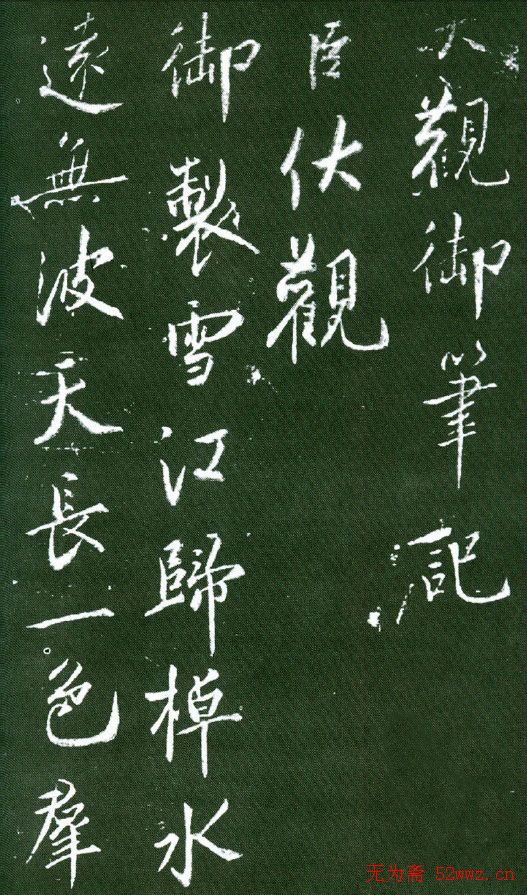 大觀御筆記
臣伏觀
御製雪江歸棹水
遠無波天長一色羣
无为斋 52mwz.cn